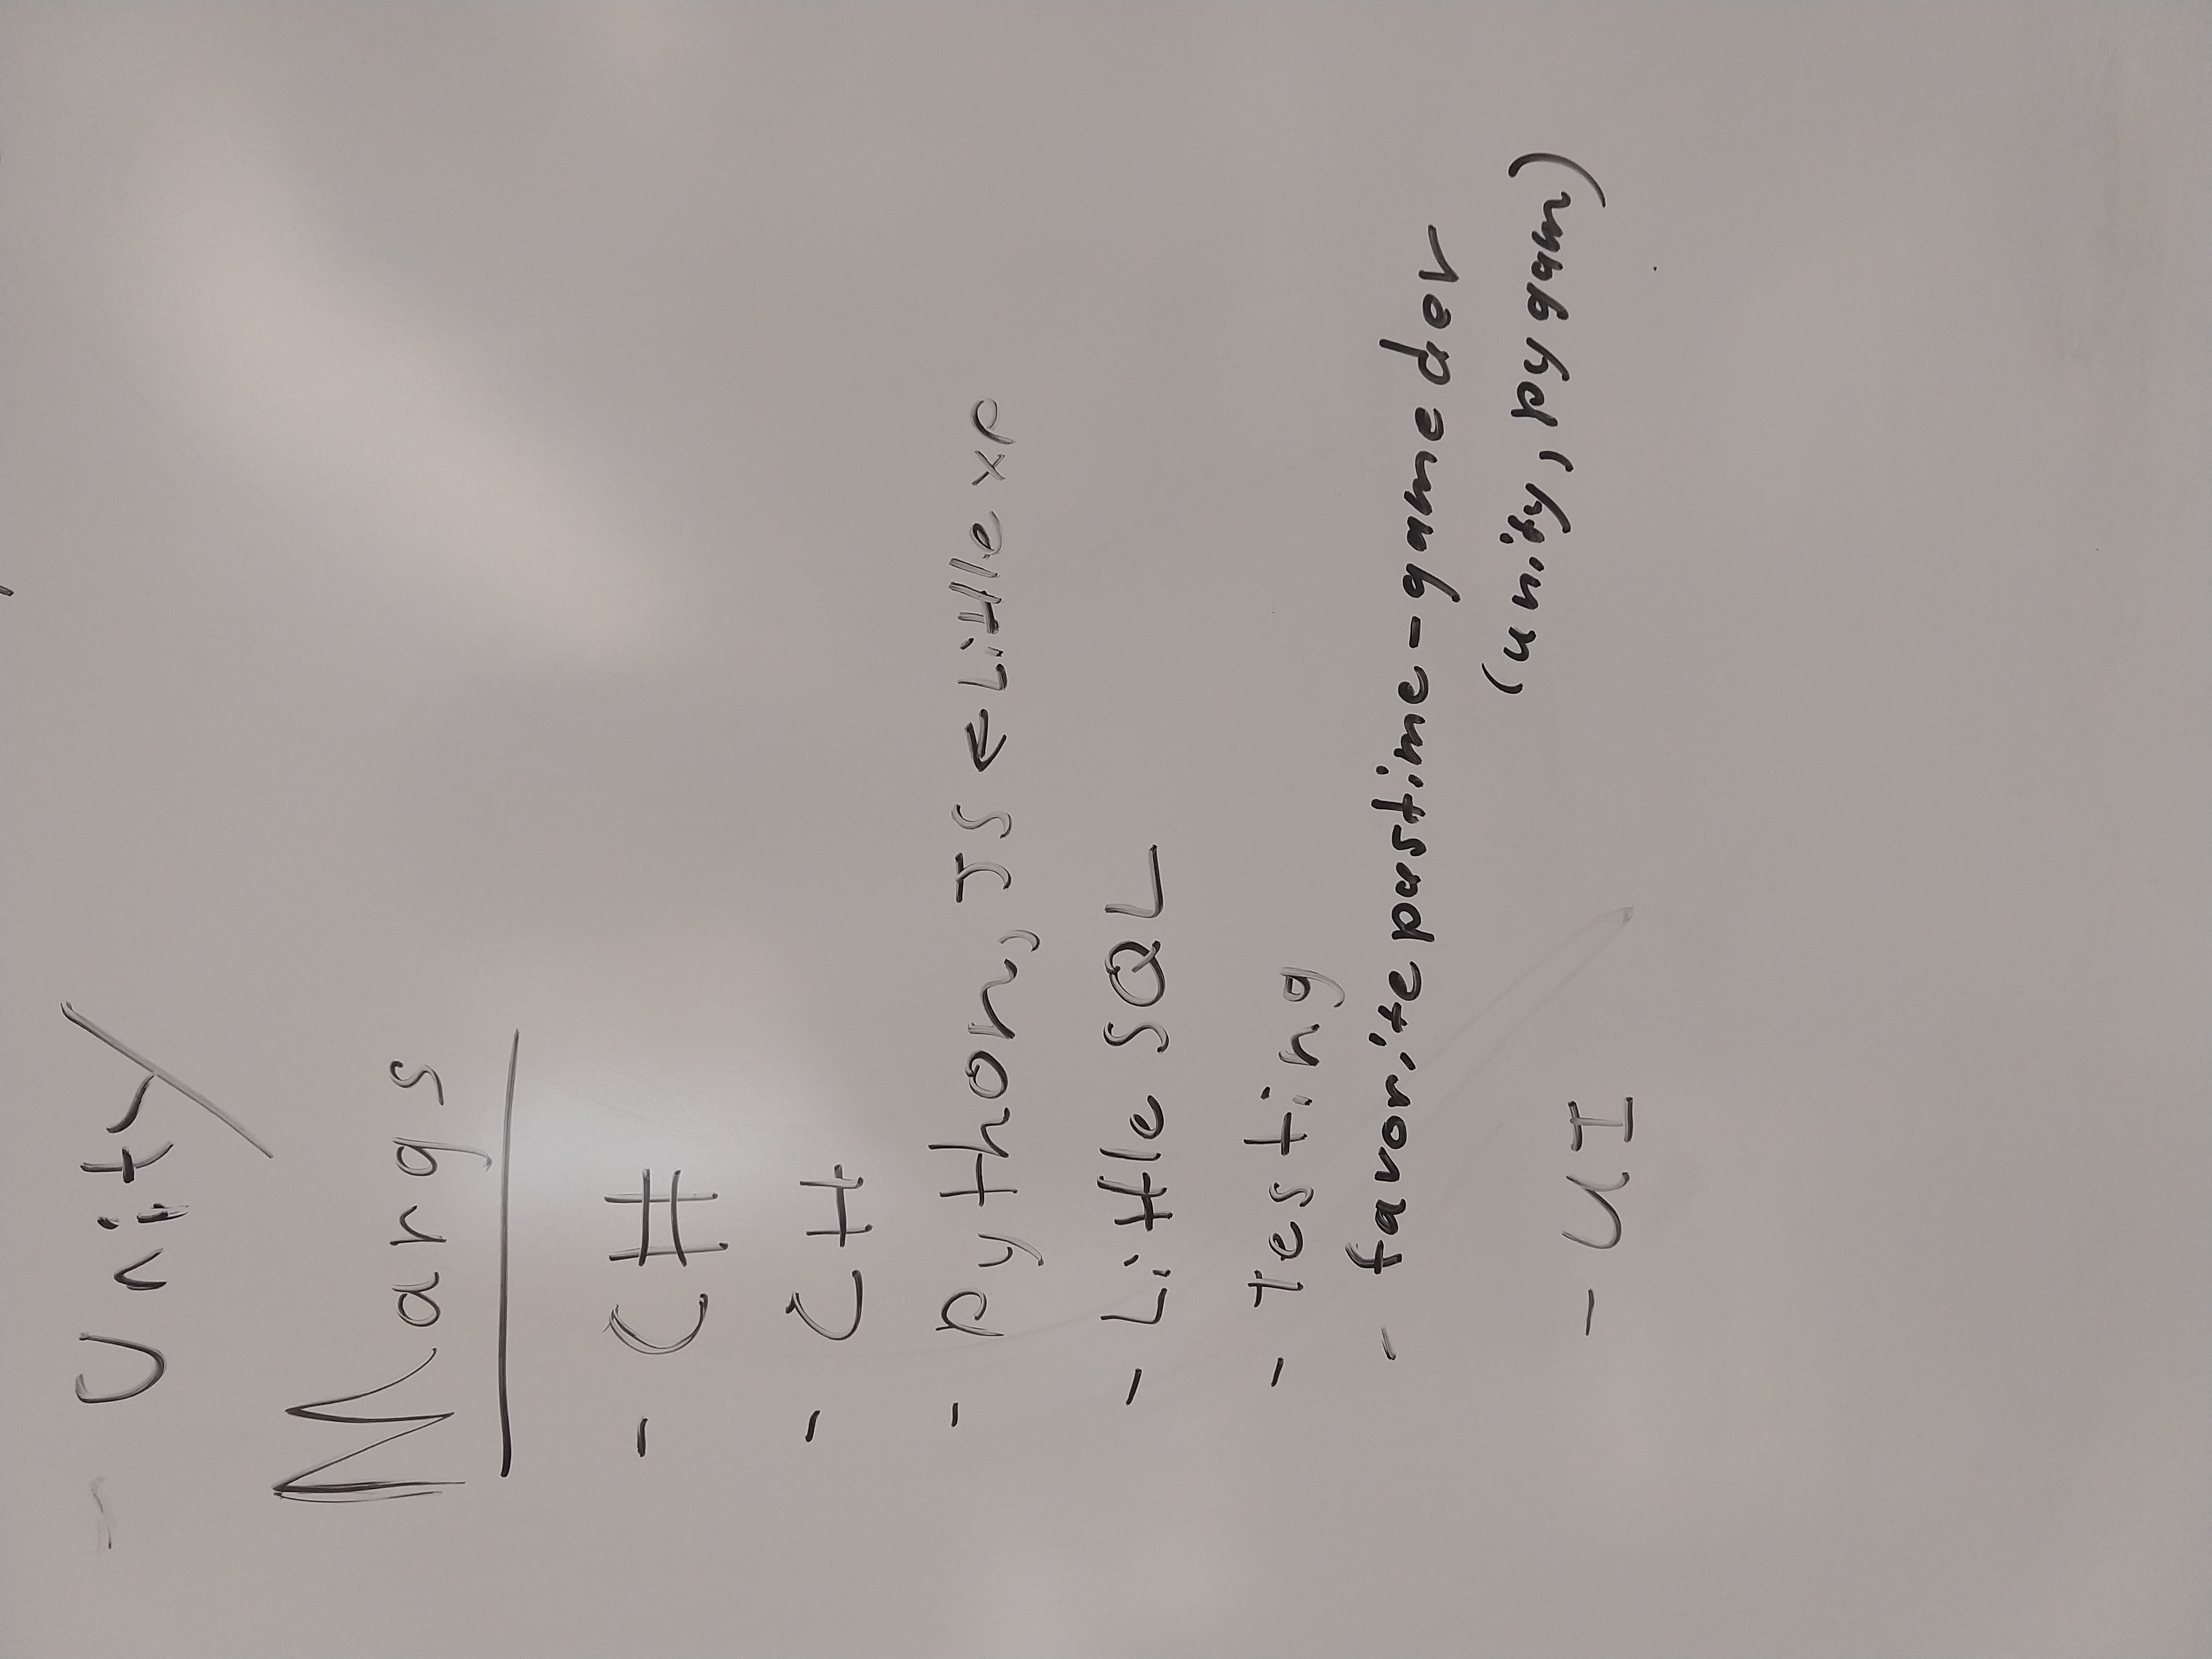 - Unity
Margs
- C#
- C++
- Python, JS ← Little xp
- Little SQL
- Testing
- favorite pastime - game dev
(unity, pygam)
- UI